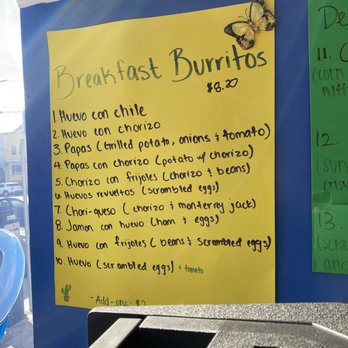 Breakfast Burritos
$8.20
1. Huevo con chile
2. Huevo con chorizo
3. Papas (Grilled potato, onions & tomato)
4. Papas con chorizo (potato w/ chorizo)
5. Chorizo con frijoles (chorizo & beans)
6 Huevos revueltos (scrambled eggs)
7. Chori-queso (chorizo & monterry jack)
8. Jamon con huevo (ham & eggs)
9. Huevo con frijoles (beans & scrambled eggs)
10. Huevo (scrambled eggs) & tomato
- Add-ons:
De
11. C
(corn
12.
(su
13.
(scra